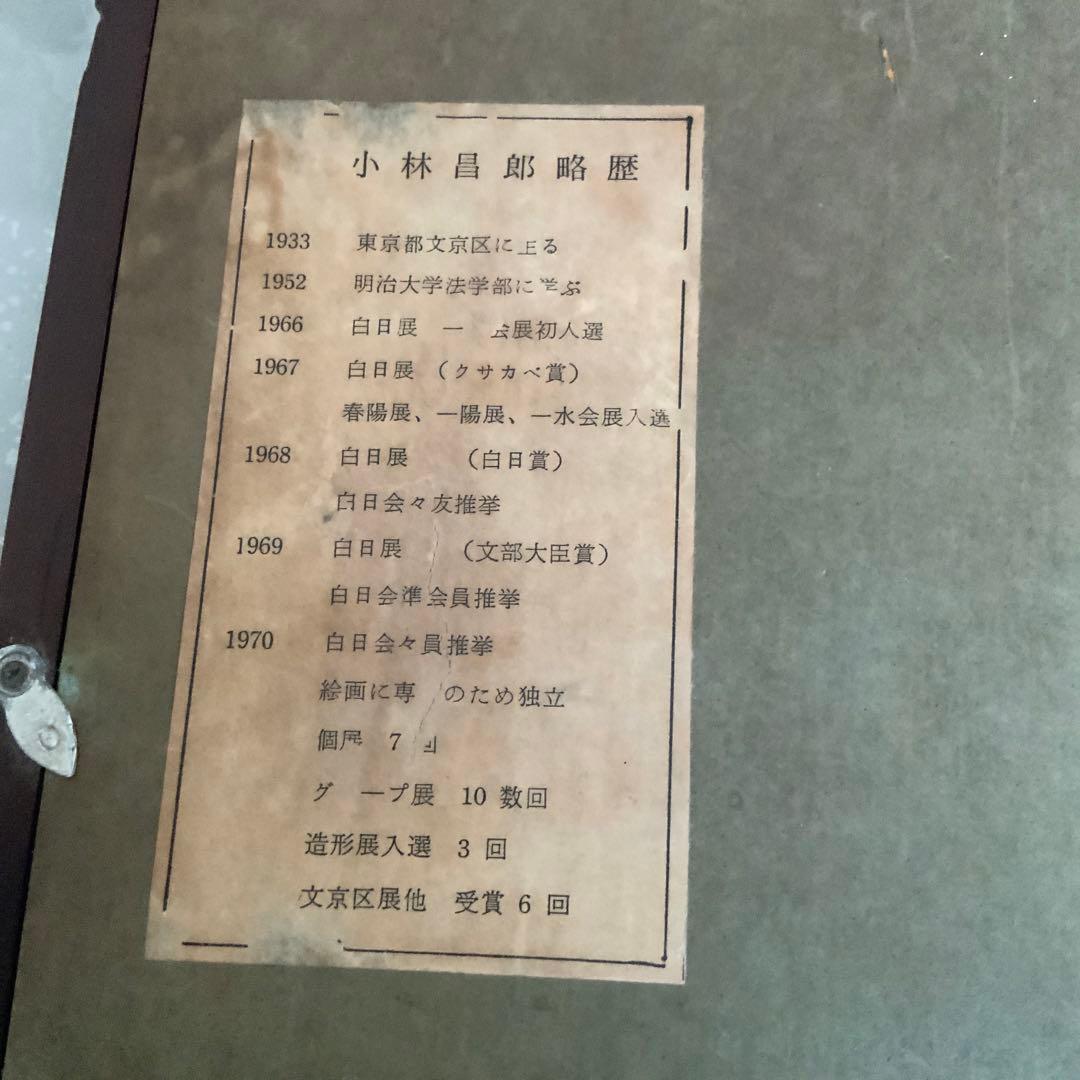 小林昌郎略歴
1933 東京都文京区に生る
1952 明治大学法学部に学ぶ
1966 白日展 一 会展初入選
1967 白日展 (クサカベ賞)
春陽展、一陽展、一水会展入選
1968 白日展 (白日賞)
白日会々友推挙
1969 白日展 (文部大臣賞)
白日会準会員推挙
1970 白日会々員推挙
絵画に専 のため独立
個展 7 回
グ ープ展 10 数回
造形展入選 3 回
文京区展他 受賞 6 回